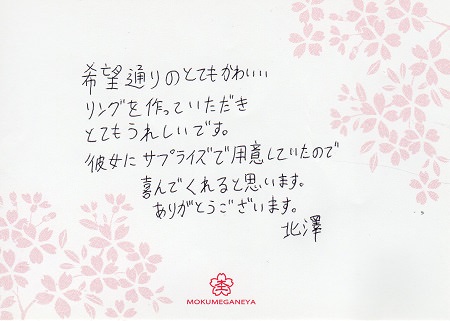 希望通りのとてもかわいい
リングを作っていただき
とてもうれしいです。
彼女にサプライズで用意していたので
喜んでくれると思います。
ありがとうございます。
北澤
MOKUMEGANEYA